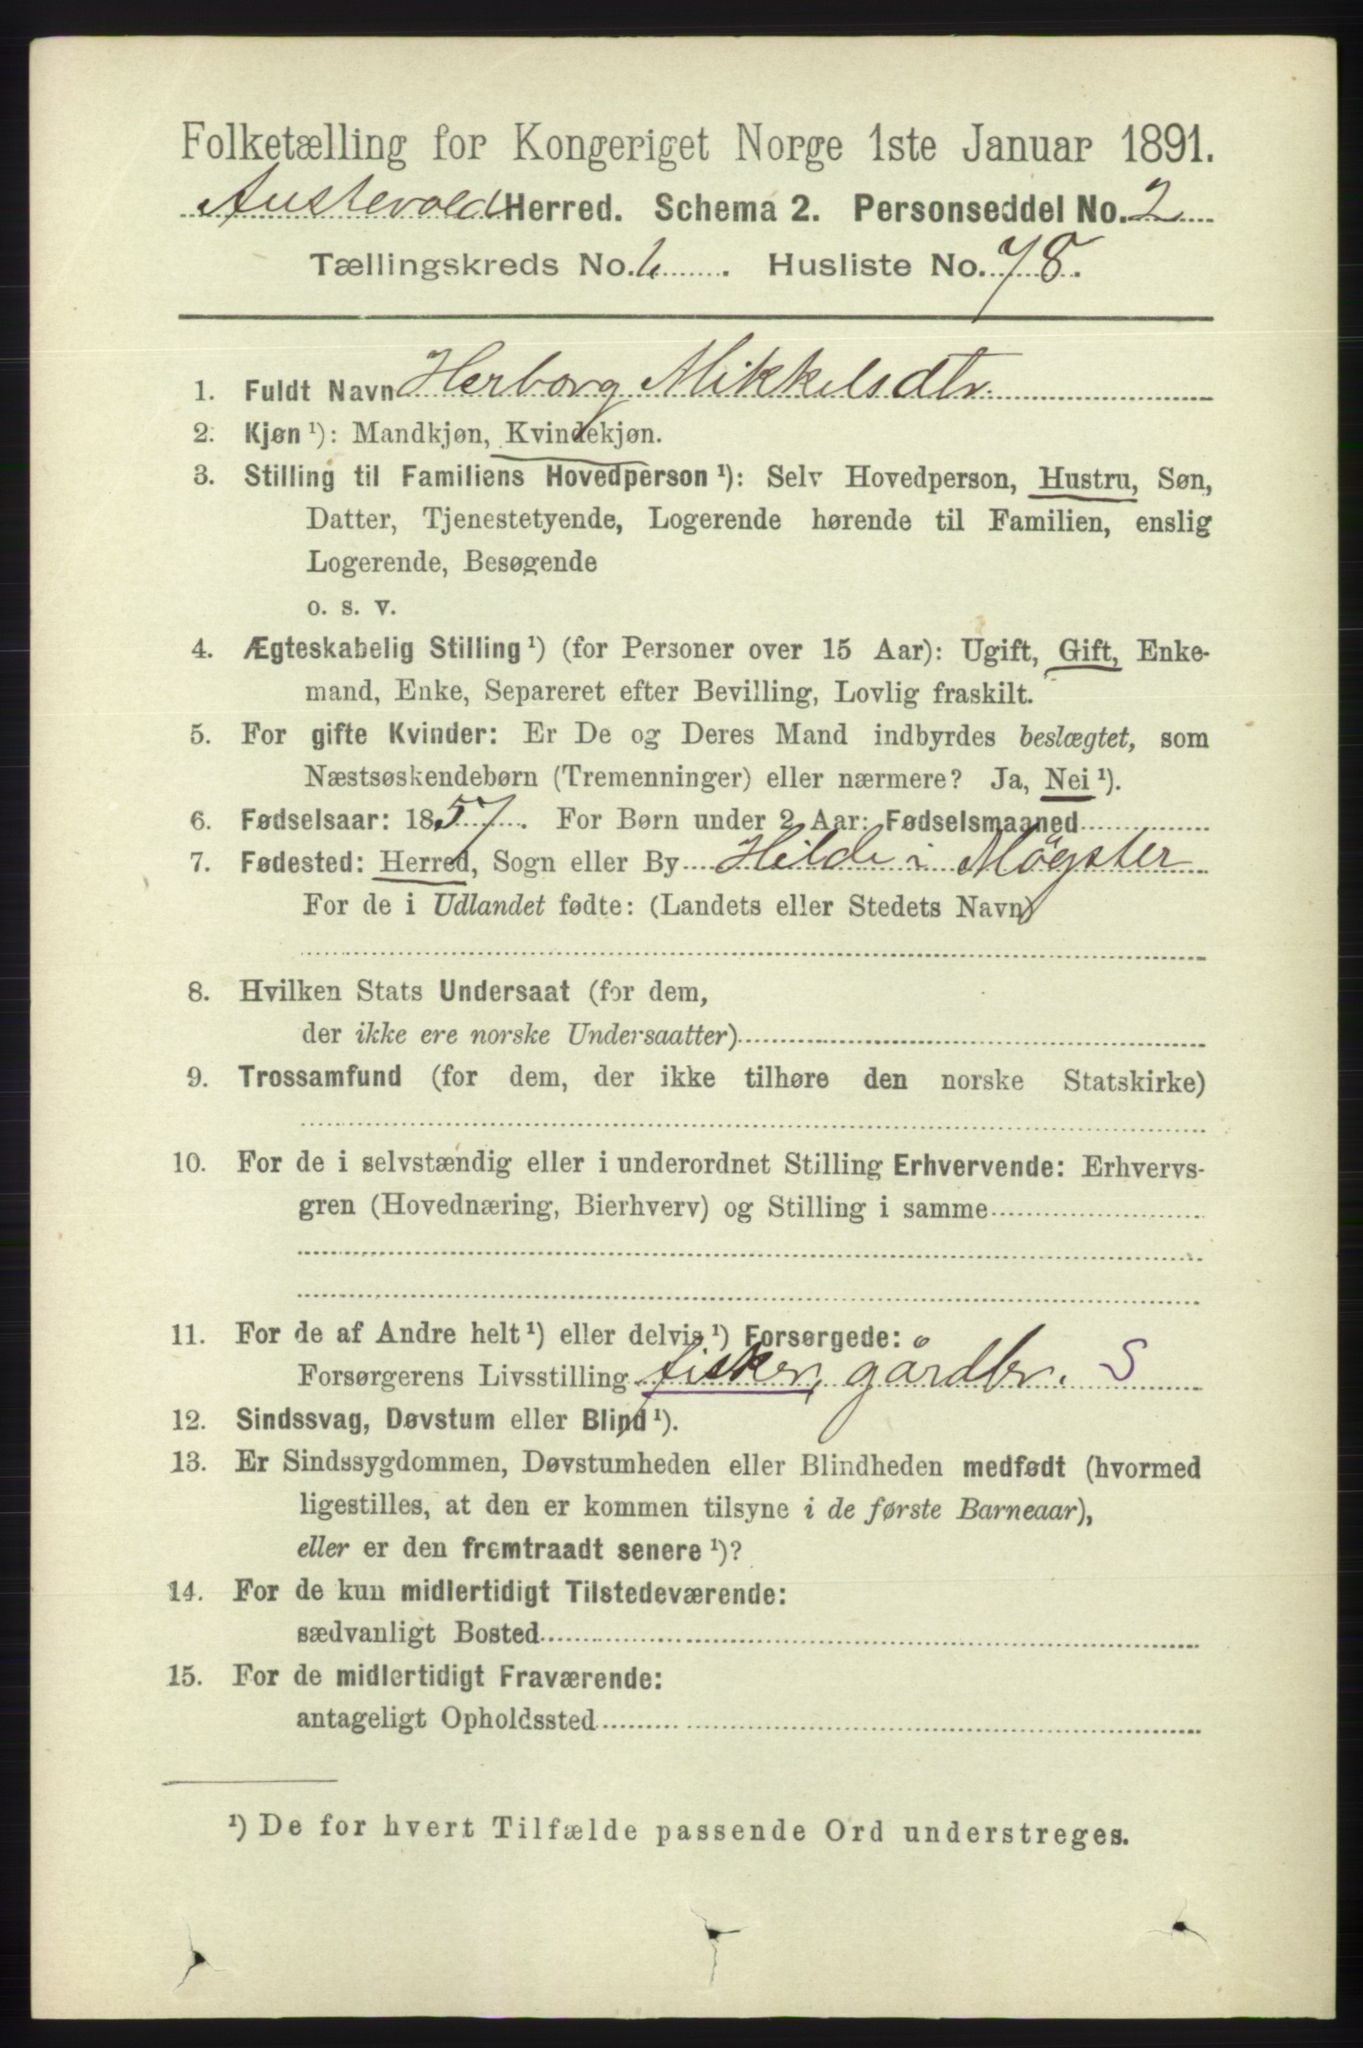 Folketælling for Kongeriget Norge 1ste Januar 1891.
Austevold Herred. Schema 2. Personseddel No. 2
Tællingskreds No. 6. Husliste No. 78.
1. Fuldt Navn Herborg Mikkelsdtr.
2. Kjøn ¹): Mandkjøn, Kvindekjøn.
3. Stilling til Familiens Hovedperson ¹): Selv Hovedperson, Hustru, Søn,
Datter, Tjenestetyende, Logerende hørende til Familien, enslig
Logerende, Besøgende
o. s. v.
4. Ægteskabelig Stilling ¹) (for Personer over 15 Aar): Ugift, Gift, Enke-
mand, Enke, Separeret efter Bevilling, Lovlig fraskilt.
5. For gifte Kvinder: Er De og Deres Mand indbyrdes beslægtet, som
Næstsøskendebørn (Tremenninger) eller nærmere? Ja, Nei ¹).
6. Fødselsaar: 1857. For Børn under 2 Aar: Fødselsmaaned
7. Fødested: Herred, Sogn eller By Hilde i Møgster
For de i Udlandet fødte: (Landets eller Stedets Navn)
8. Hvilken Stats Undersaat (for dem,
der ikke ere norske Undersaatter)
9. Trossamfund (for dem, der ikke tilhøre den norske Statskirke)
10. For de i selvstændig eller i underordnet Stilling Erhvervende: Erhvervs-
gren (Hovednæring, Bierhverv) og Stilling i samme
11. For de af Andre helt ¹) eller delvis ¹) Forsørgede:
Forsørgerens Livsstilling fisker, gårdbr. S
12. Sindssvag, Døvstum eller Blind ¹).
13. Er Sindssygdommen, Døvstumheden eller Blindheden medfødt (hvormed
ligestilles, at den er kommen tilsyne i de første Barneaar),
eller er den fremtraadt senere ¹)?
14. For de kun midlertidigt Tilstedeværende:
sædvanligt Bosted
15. For de midlertidigt Fraværende:
antageligt Opholdssted
¹) De for hvert Tilfælde passende Ord understreges.